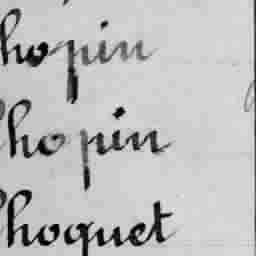 hopin
hopin
hoquet